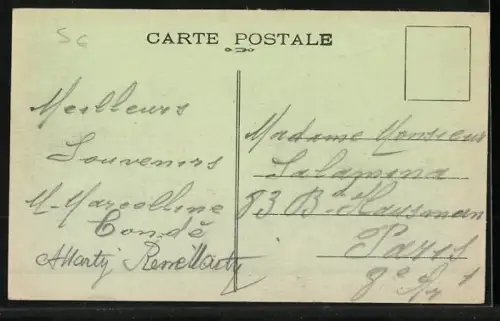 56
CARTE POSTALE
Meilleurs
Souvenirs
M. Marcelline
Condé
AMarty Rene Marty
Madame Monsieur
Salamina
83 Bd Hausman
Paris
8e Art